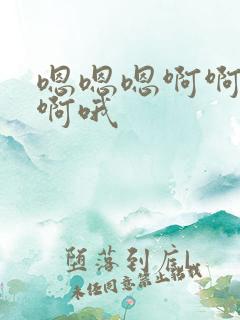 嗯嗯嗯啊啊
啊哦
堕落到底L
未经同意禁止转载